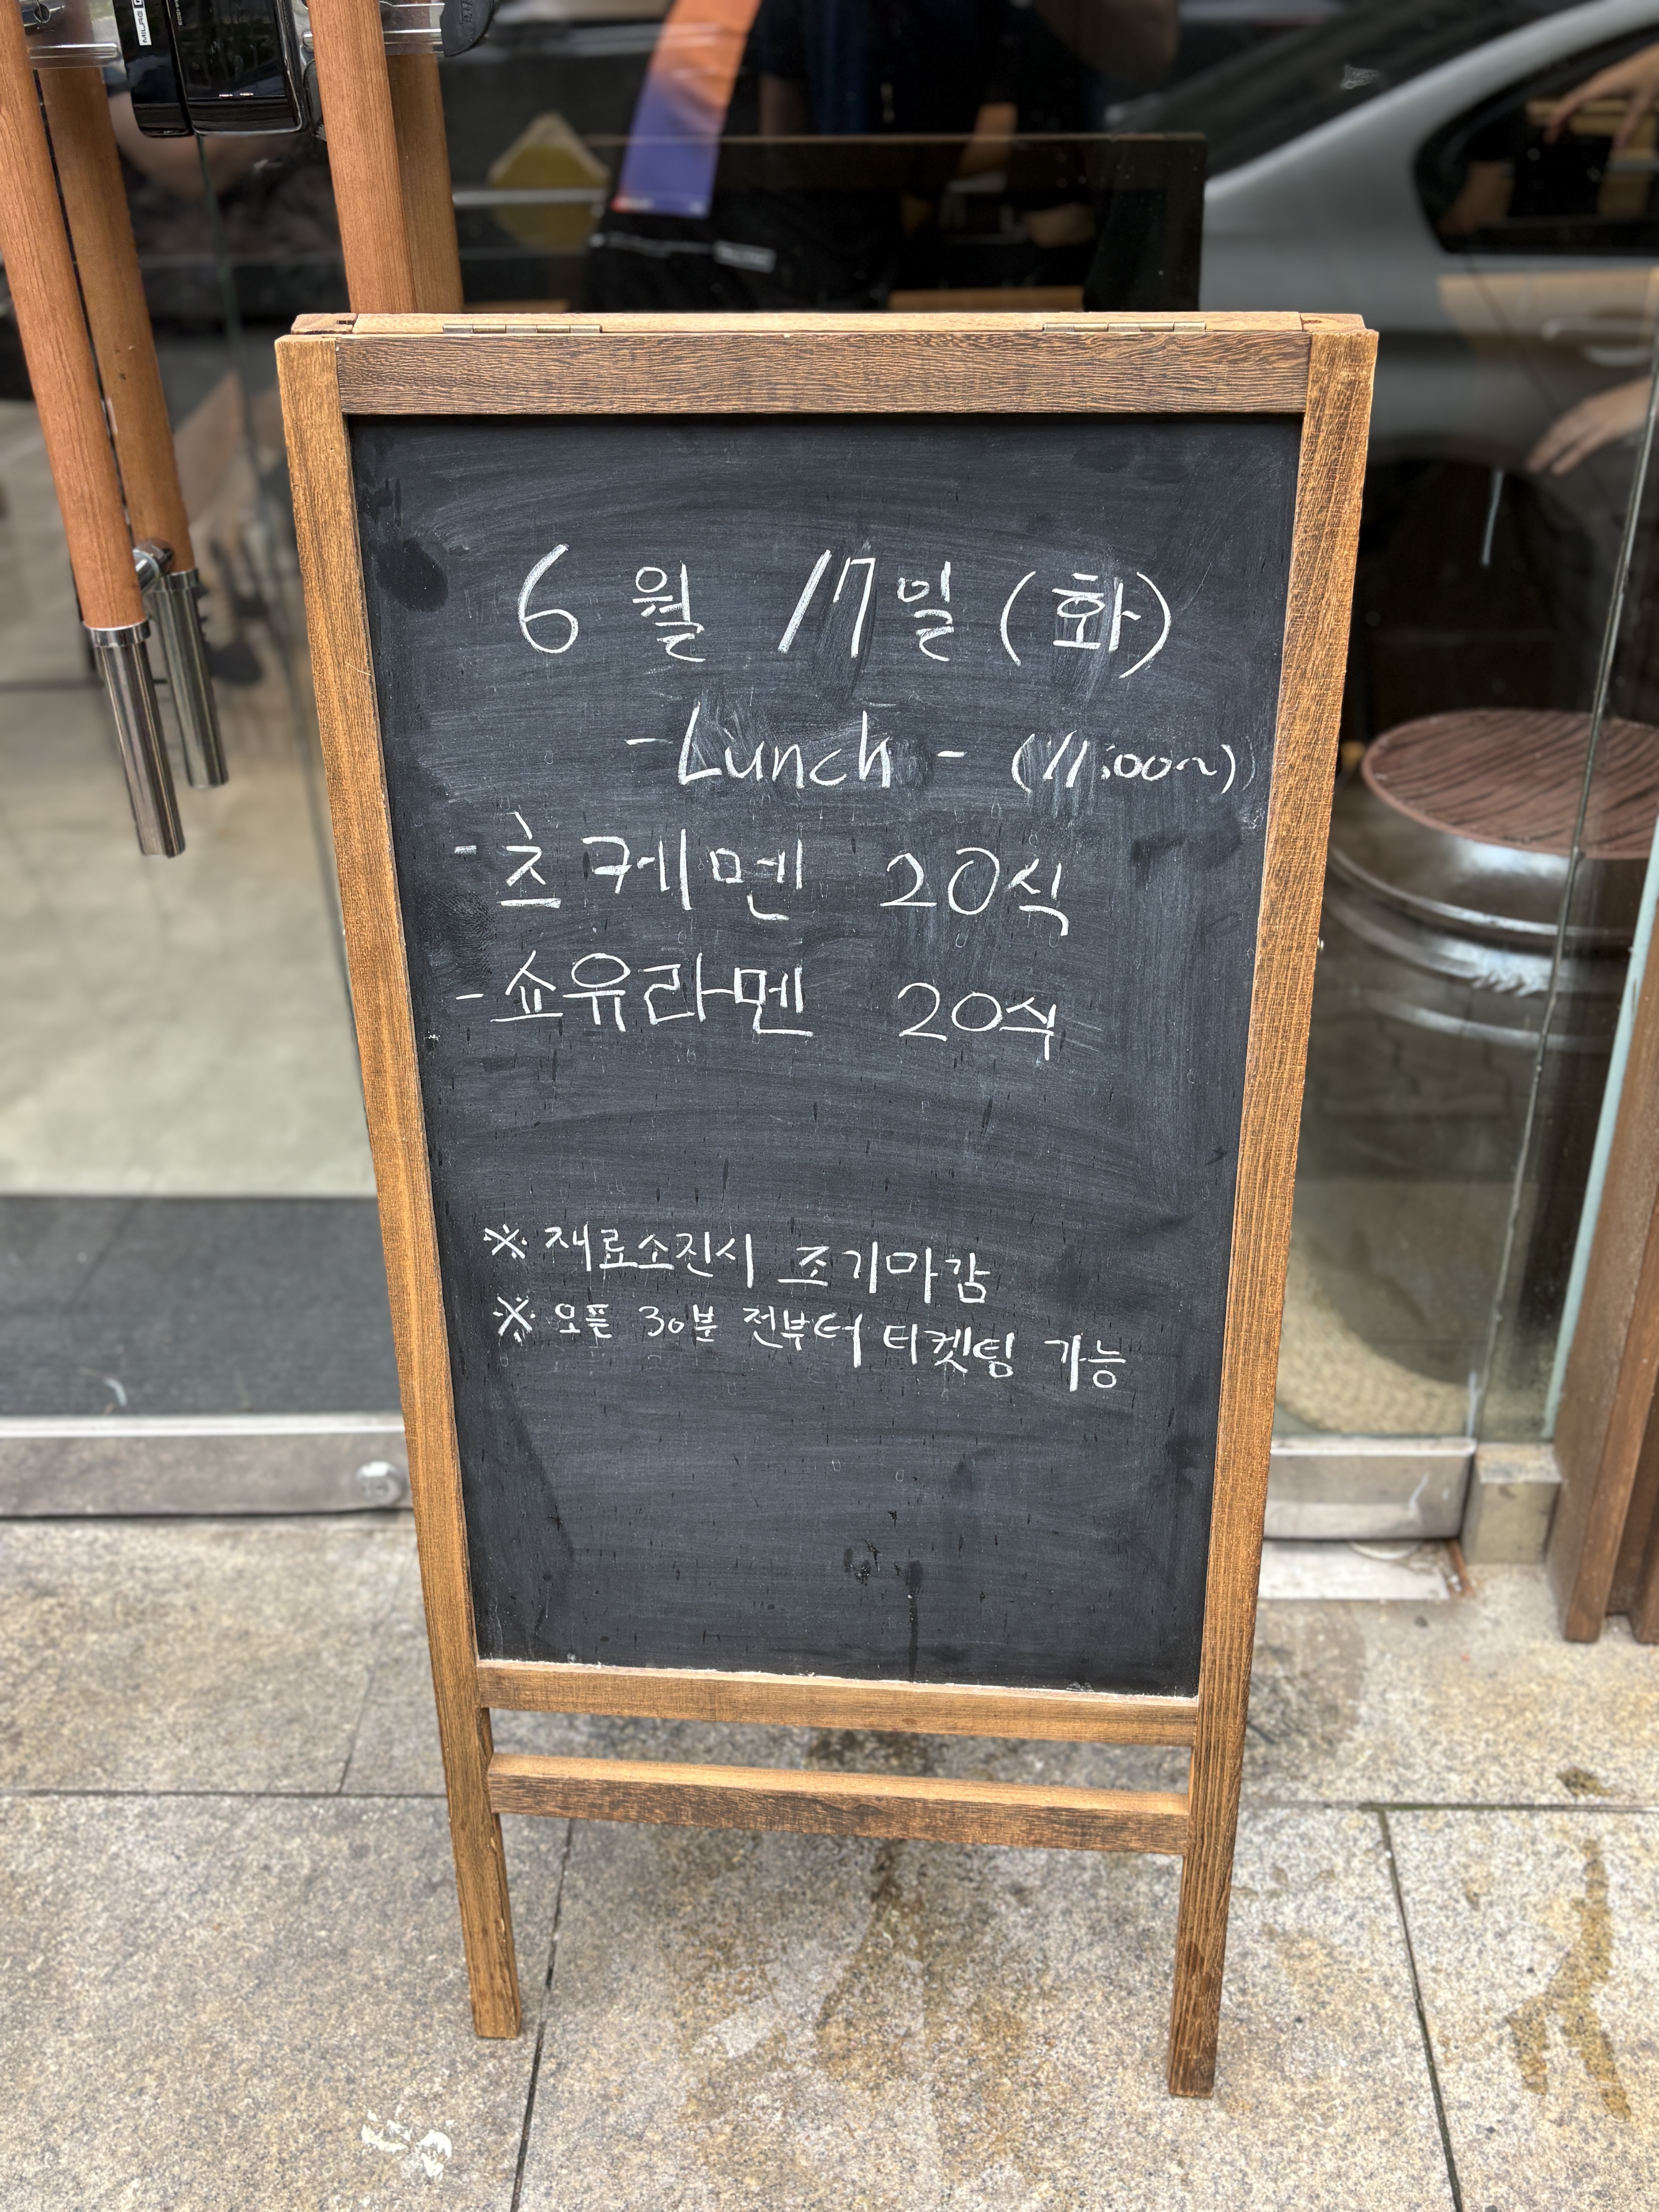 6월 17일 (화)
-Lunch- (11:00~)
- 츠케멘 20식
- 쇼유라멘 20식
※ 재료소진시 조기마감
※ 오픈 30분 전부터 티켓팅 가능